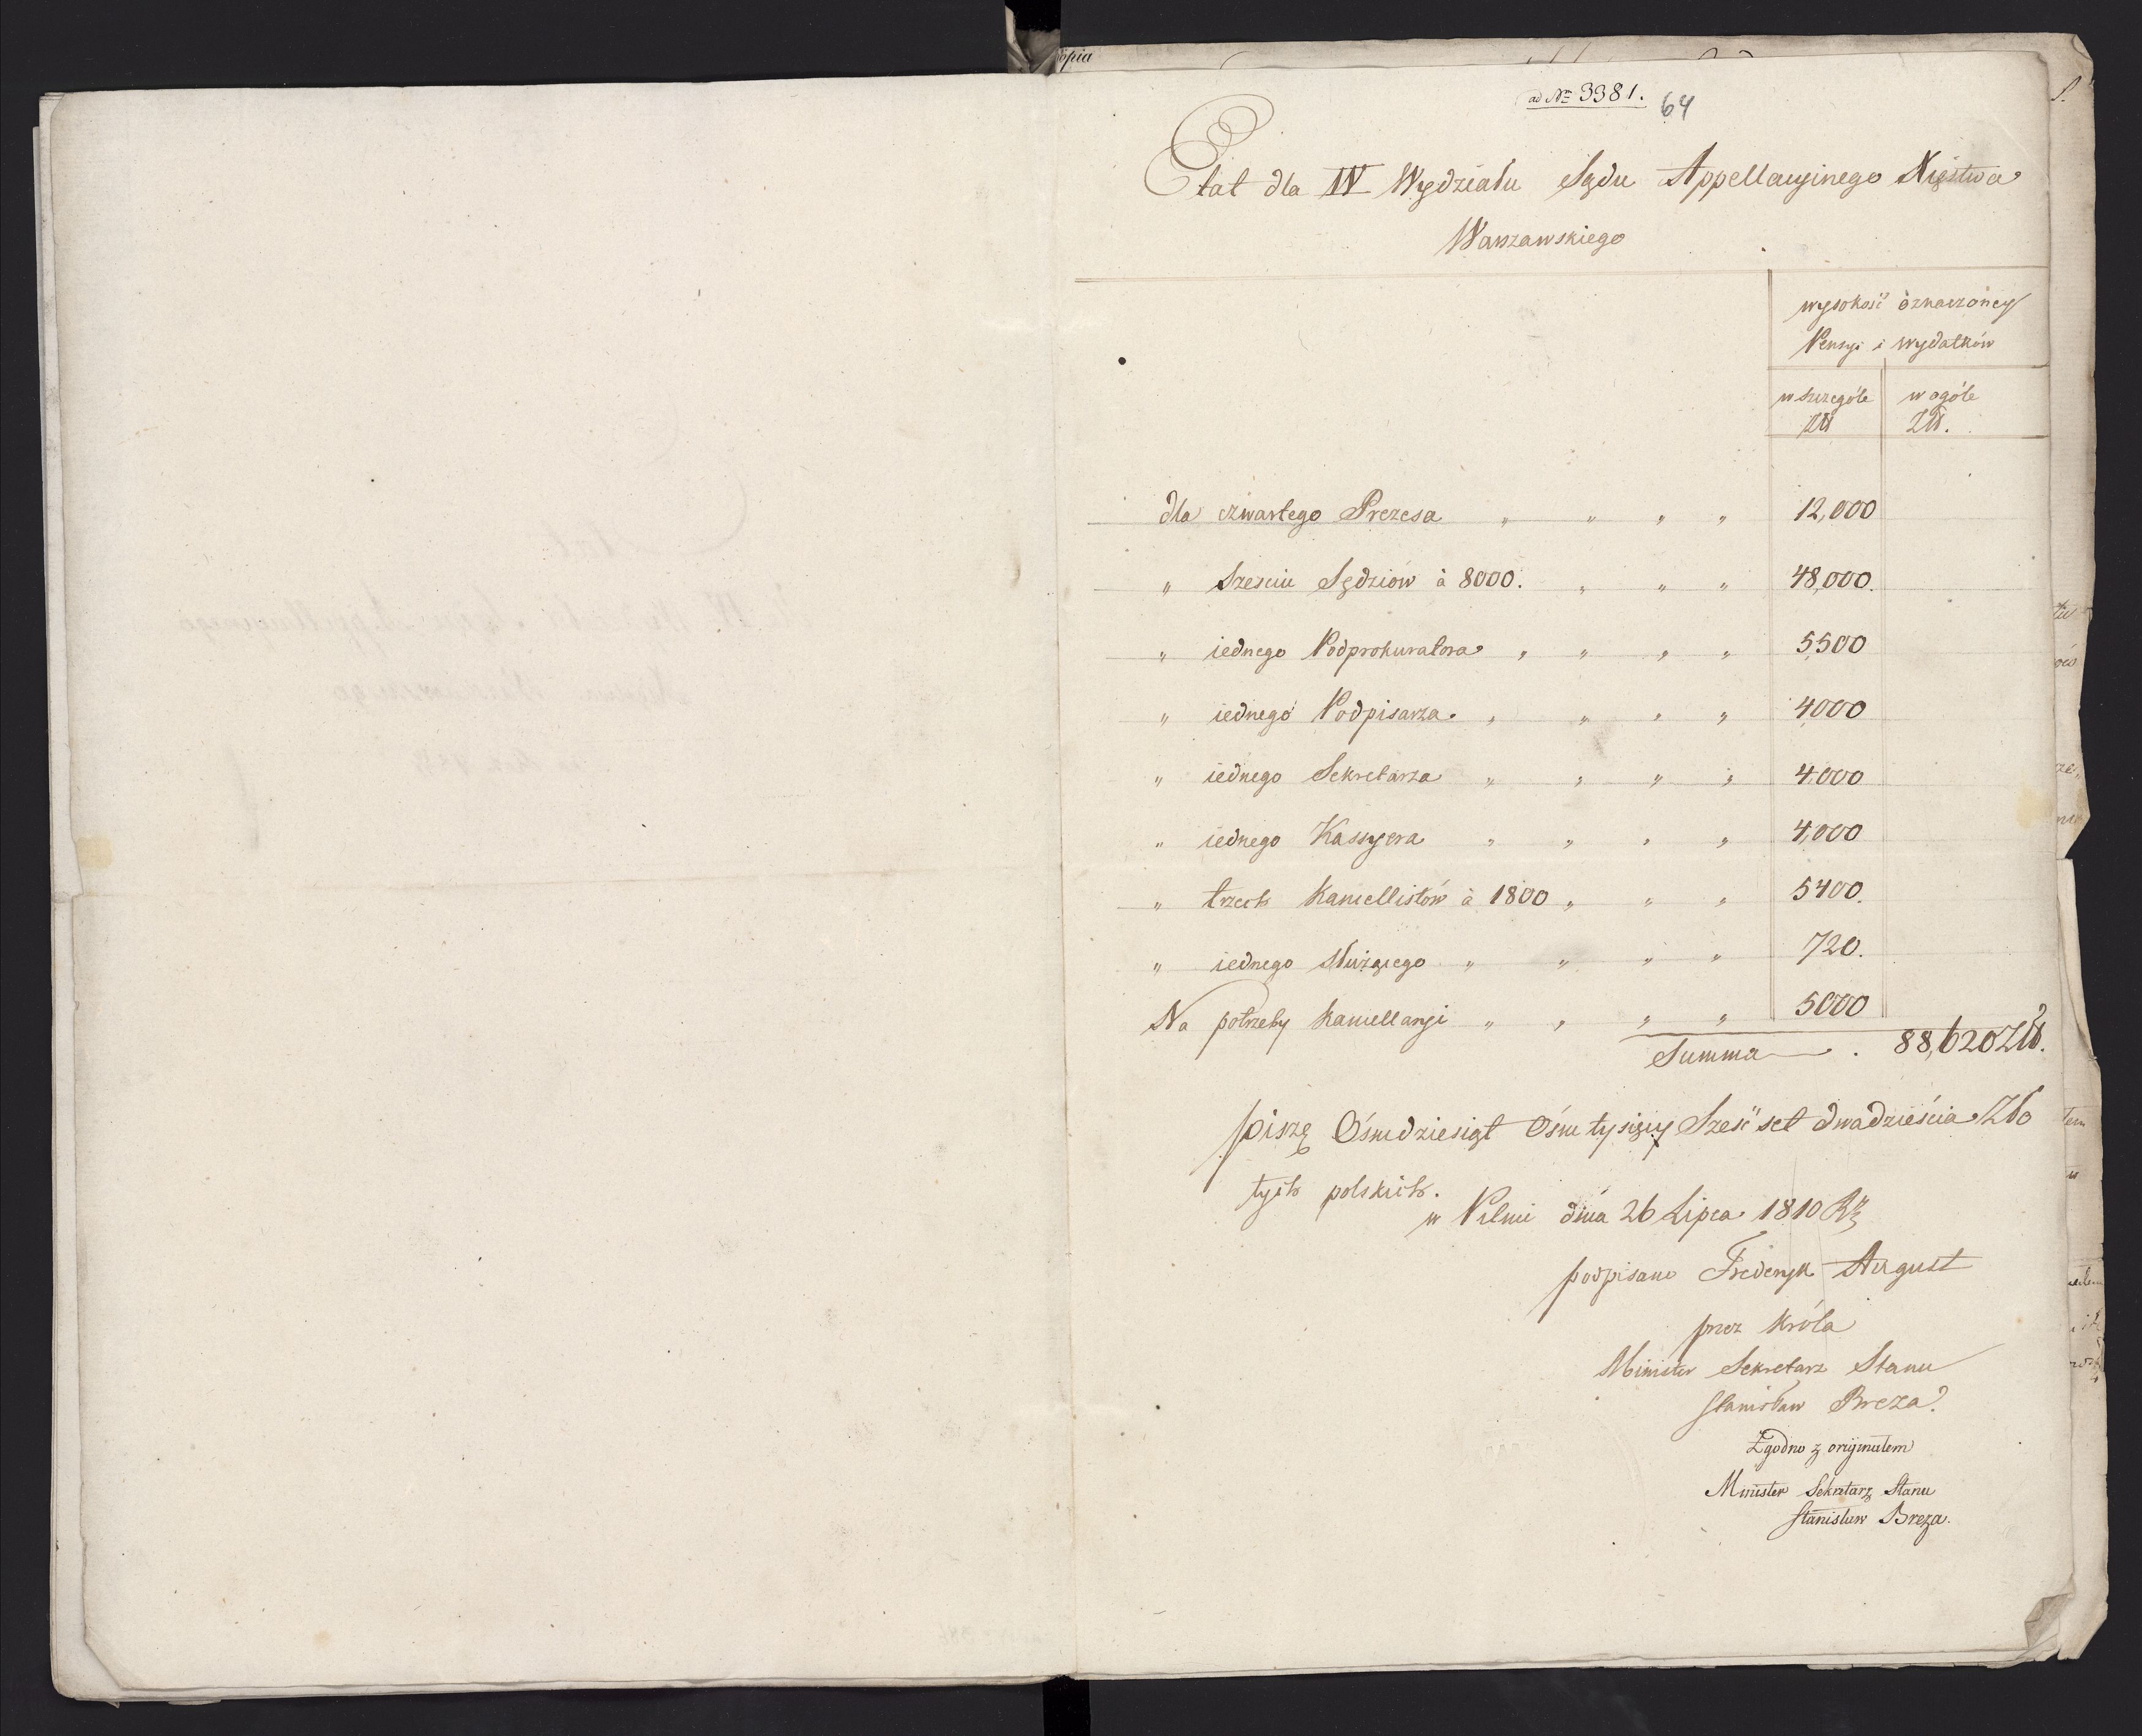 ad Nro 3381.
64
Etat dla IV Wydziału Sądu Appellacyinego Xięstwa
Warszawskiego
wysokość oznaczoney
Pensyi i wydatków
w szczególe w ogóle
Złł Złł.
dla czwartego Prezesa " " " " 12,000
" Sześciu Sędziów à 8000. " " " 48,000.
" iednego Podprokuratora " " " " 5,500
" iednego Podpisarza. " " " " 4,000
" iednego Sekretarza " " " " 4,000
" iednego Kassyera " " " " 4,000
" trzech Kancellistów à 1800 " " " 5400.
" iednego służącego " " " " 720.
Na potrzeby Kancellaryi " " " " 5000
Summa . 88,620 Złł.
piszę Ośmdziesiąt Ośm tysięcy Sześć set dwadzieścia Zło
tych polskich.
w Pilnic dnia 26 Lipca 1810 Rku
podpisano Frederyk August
przez Króla
Minister Sekretarz Stanu
Stanisław Breza.
Zgodno z oryginałem
Minister Sekretarz Stanu
Stanisław Breza.